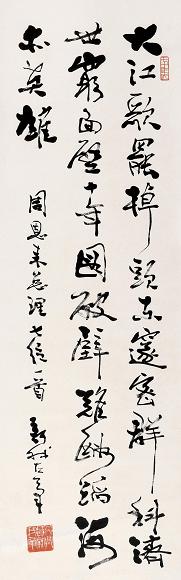 大江歌罷掉頭东邃密群科濟
世窮面壁十年圖破壁難酬蹈海
亦英雄
周恩来總理七絕一首 新我左筆